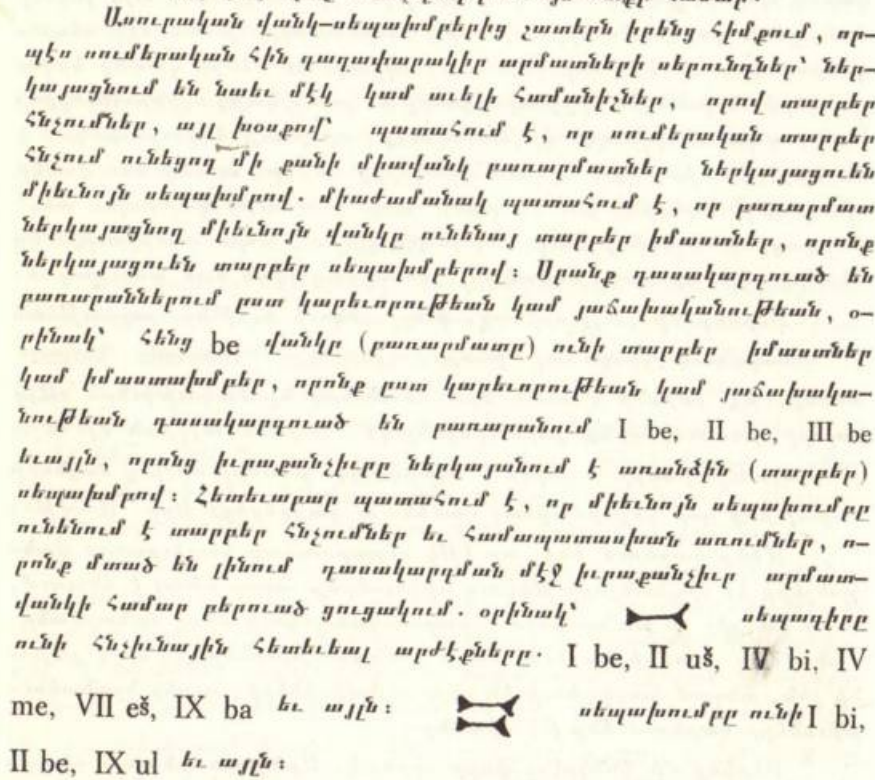 Ասուրական վանկ-սեպախմբերից շատերն իրենց հիմքում, որ-
պէս սումերական հին գաղափարակիր արմատների սերունդներ՝ ներ-
կայացնում են նաեւ մէկ կամ աւելի համանիշներ, որով տարբեր
հնչումներ, այլ խօսքով՝ պատահում է, որ սումերական տարբեր
հնչում ունեցող մի քանի միավանկ բառարմատներ ներկայացուեն
միեւնոյն սեպախմբով. միաժամանակ պատահում է, որ բառարմատ
ներկայացնող միեւնոյն վանկը ունենայ տարբեր իմաստներ, որոնք
ներկայացուեն տարբեր սեպախմբերով: Սրանք դասակարգուած են
բառարաններում ըստ կարեւորութեան կամ յաճախականութեան, օ-
րինակ՝ հենց be վանկը (բառարմատը) ունի տարբեր իմաստներ
կամ իմաստախմբեր, որոնք ըստ կարեւորութեան կամ յաճախակա-
նութեան դասակարգուած են բառարանում I be, II be, III be
եւայլն, որոնց իւրաքանչիւրը ներկայանում է առանձին (տարբեր)
սեպախմբով: Հետեւաբար պատահում է, որ միեւնոյն սեպախումբը
ունենում է տարբեր հնչումներ եւ համապատասխան առումներ, ո-
րոնք մտած են լինում դասակարգման մէջ իւրաքանչիւր արմատ-
վանկի համար բերուած ցուցակում. օրինակ՝ սեպագիրը
ունի հնչիւնային հետեւեալ արժէքները. I be, II uš, IV bi, IV
me, VII eš, IX ba եւ այլն: սեպախումբը ունի I bi,
II be, IX ul եւ այլն: